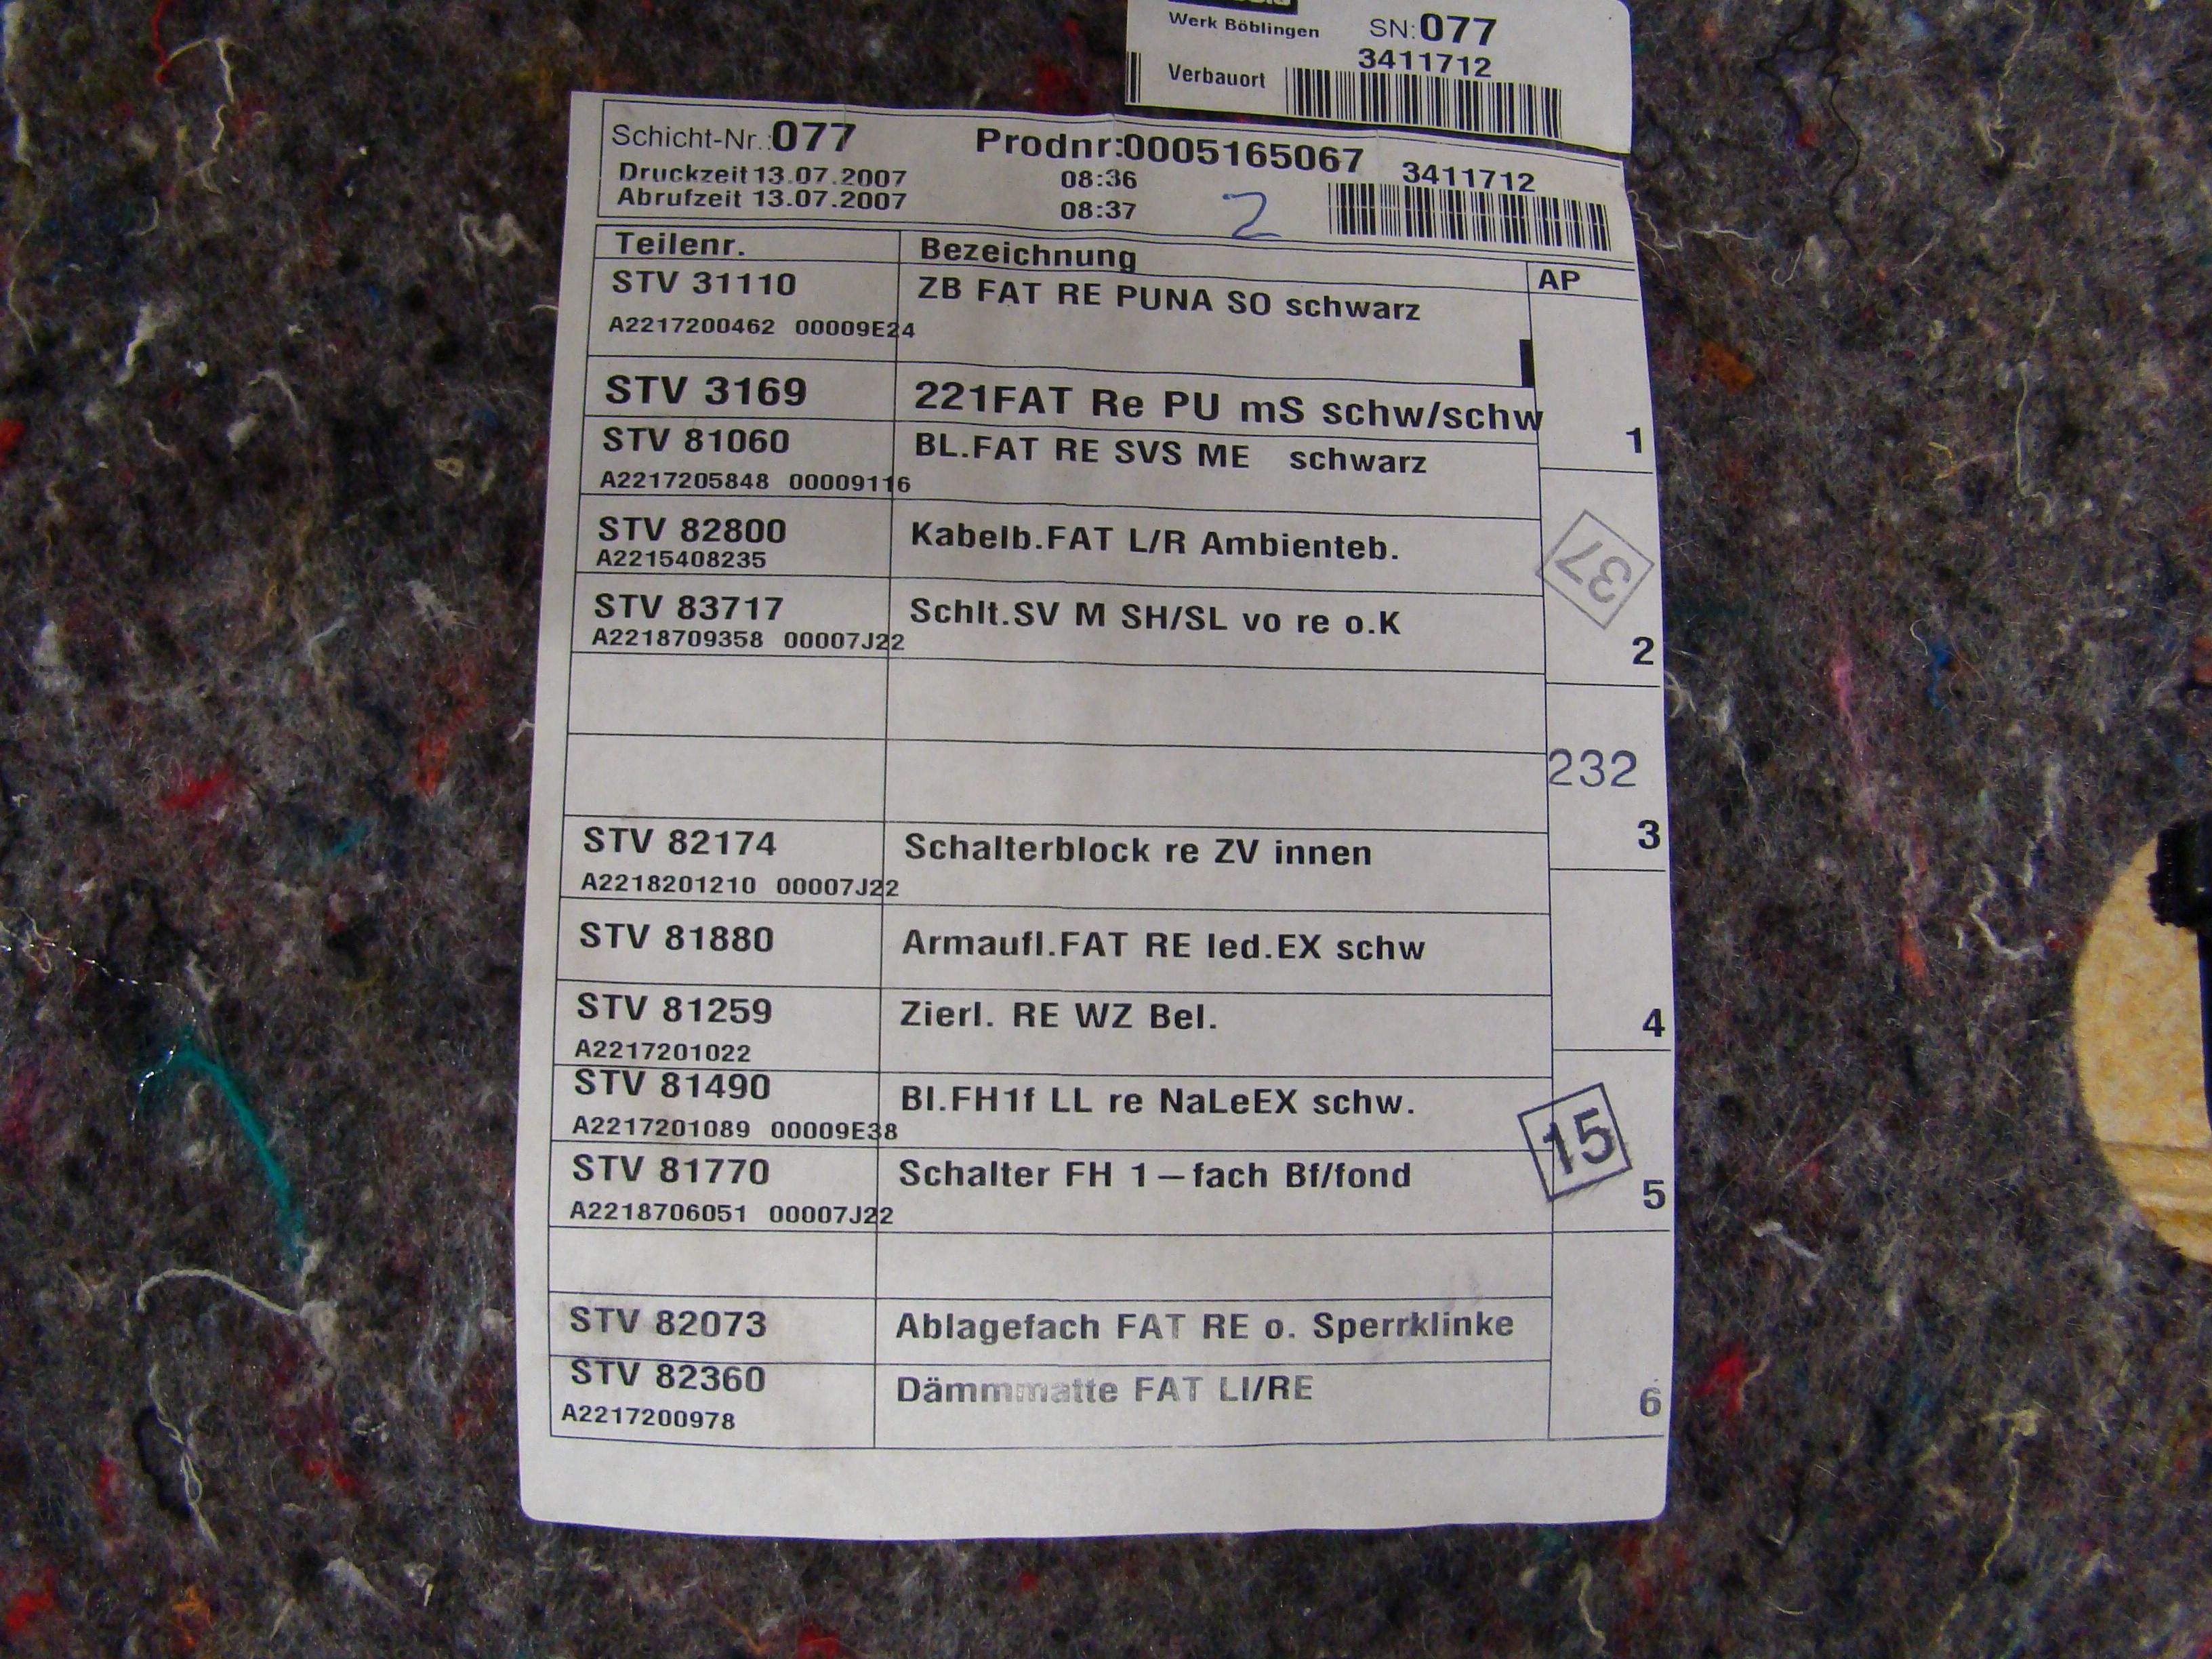 Werk Böblingen SN:077
3411712
Verbauort
Schicht-Nr.:077 Prodnr:0005165067 3411712
Druckzeit 13.07.2007 08:36
Abrufzeit 13.07.2007 08:37 2
Teilenr. Bezeichnung AP
STV 31110 ZB FAT RE PUNA SO schwarz
A2217200462 00009E24
STV 3169 221FAT Re PU mS schw/schw
1
STV 81060 BL.FAT RE SVS ME schwarz
A2217205848 00009116
STV 82800 Kabelb.FAT L/R Ambienteb.
A2215408235
37
STV 83717 Schlt.SV M SH/SL vo re o.K
A2218709358 00007J22
2
232
3
STV 82174 Schalterblock re ZV innen
A2218201210 00007J22
STV 81880 Armaufl.FAT RE led.EX schw
STV 81259 Zierl. RE WZ Bel.
4
A2217201022
STV 81490 Bl.FH1f LL re NaLeEX schw.
A2217201089 00009E38
15
STV 81770 Schalter FH 1-fach Bf/fond
5
A2218706051 00007J22
STV 82073 Ablagefach FAT RE o. Sperrklinke
STV 82360 Dämmmatte FAT LI/RE
6
A2217200978